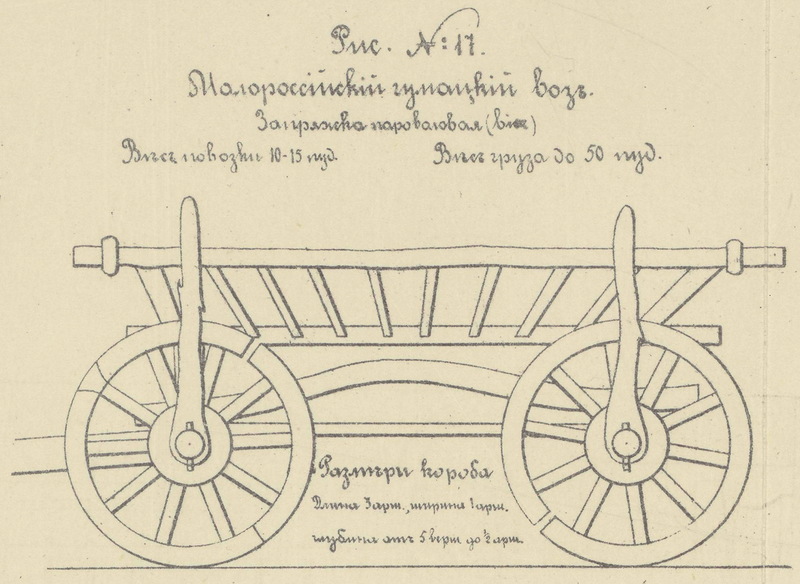 Рис. №: 17.
Малороссійскій чумацкій возъ.
Запряжка пароволовая
Вѣсъ повозки 10-15 пуд. Вѣсъ груза до 50 пуд.
Размѣри короба
Длина 3 арш., ширина 1 арш.
глубина отъ 5 верш. до ½ арш.